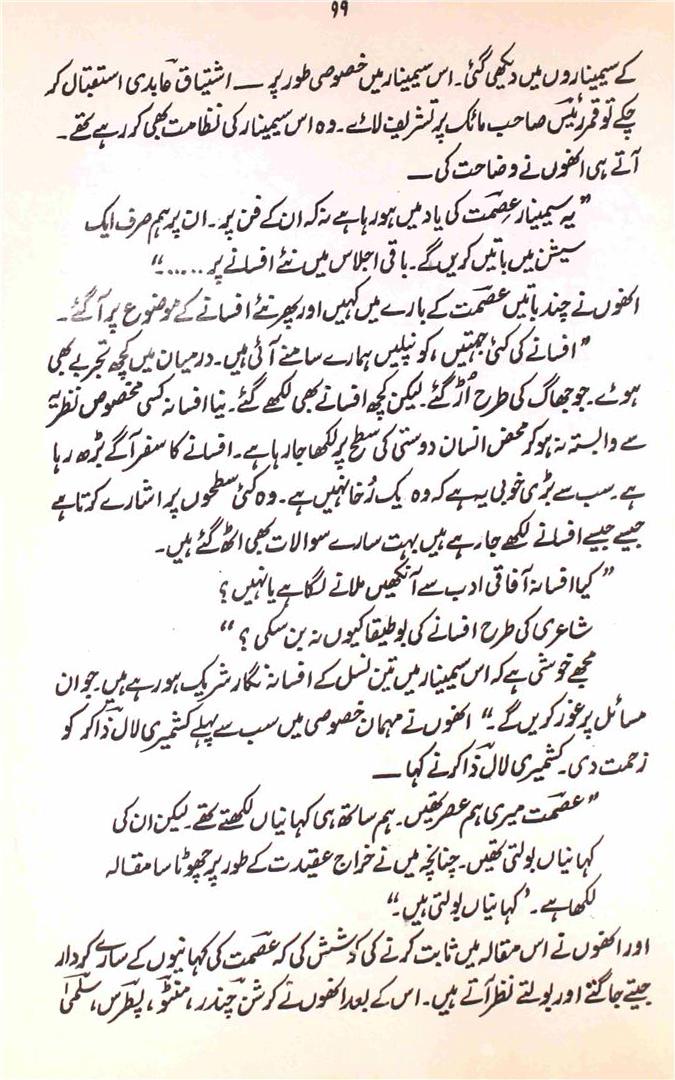 ۹۹
کے سیمیناروں میں دیکھی گئی۔ اس سیمینار میں خصوصی طور پر — اشتیاق عابدی استقبال کر
چکے تو قمر رئیس صاحب مائک پر تشریف لائے۔ وہ اس سیمینار کی نظامت بھی کر رہے تھے۔
آتے ہی انھوں نے وضاحت کی —
"یہ سیمینار عصمت کی یاد میں ہو رہا ہے نہ کہ ان کے فن پر۔ ان پر ہم صرف ایک
سیشن میں باتیں کریں گے۔ باقی اجلاس میں نئے افسانے پر ....."
انھوں نے چند باتیں عصمت کے بارے میں کہیں اور پھر نئے افسانے کے موضوع پر آ گئے۔
"افسانے کی کئی جہتیں، کونپلیں ہمارے سامنے آئی ہیں۔ درمیان میں کچھ تجربے بھی
ہوئے۔ جو جھاگ کی طرح اُڑ گئے۔ لیکن کچھ افسانے بھی لکھے گئے۔ نیا افسانہ کسی مخصوص نظریہ
سے وابستہ نہ ہو کر محض انسان دوستی کی سطح پر لکھا جا رہا ہے۔ افسانے کا سفر آگے بڑھ رہا
ہے۔ سب سے بڑی خوبی یہ ہے کہ وہ یک رُخا نہیں ہے۔ وہ کئی سطحوں پر اشارے کرتا ہے
جیسے جیسے افسانے لکھے جا رہے ہیں بہت سارے سوالات بھی اٹھ گئے ہیں۔
"کیا افسانہ آفاقی ادب سے آنکھیں ملانے لگا ہے یا نہیں؟
شاعری کی طرح افسانے کی بوطیقا کیوں نہ بن سکی؟"
مجھے خوشی ہے کہ اس سیمینار میں تین نسل کے افسانہ نگار شریک ہو رہے ہیں۔ جو ان
مسائل پر غور کریں گے۔" انھوں نے مہمان خصوصی میں سب سے پہلے کشمیری لال ذاکر کو
زحمت دی۔ کشمیری لال ذاکر نے کہا —
"عصمت میری ہم عصر تھیں۔ ہم ساتھ ہی کہانیاں لکھتے تھے۔ لیکن ان کی
کہانیاں بولتی تھیں۔ چنانچہ میں نے خراج عقیدت کے طور پر چھوٹا سا مقالہ
لکھا ہے۔ 'کہانیاں بولتی ہیں۔"
اور انھوں نے اس مقالہ میں ثابت کرنے کی کوشش کی کہ عصمت کی کہانیوں کے سارے کردار
جیتے جاگتے اور بولتے نظر آتے ہیں۔ اس کے بعد انھوں نے کرشن چندر، منٹو، پطرس، سلمیٰ